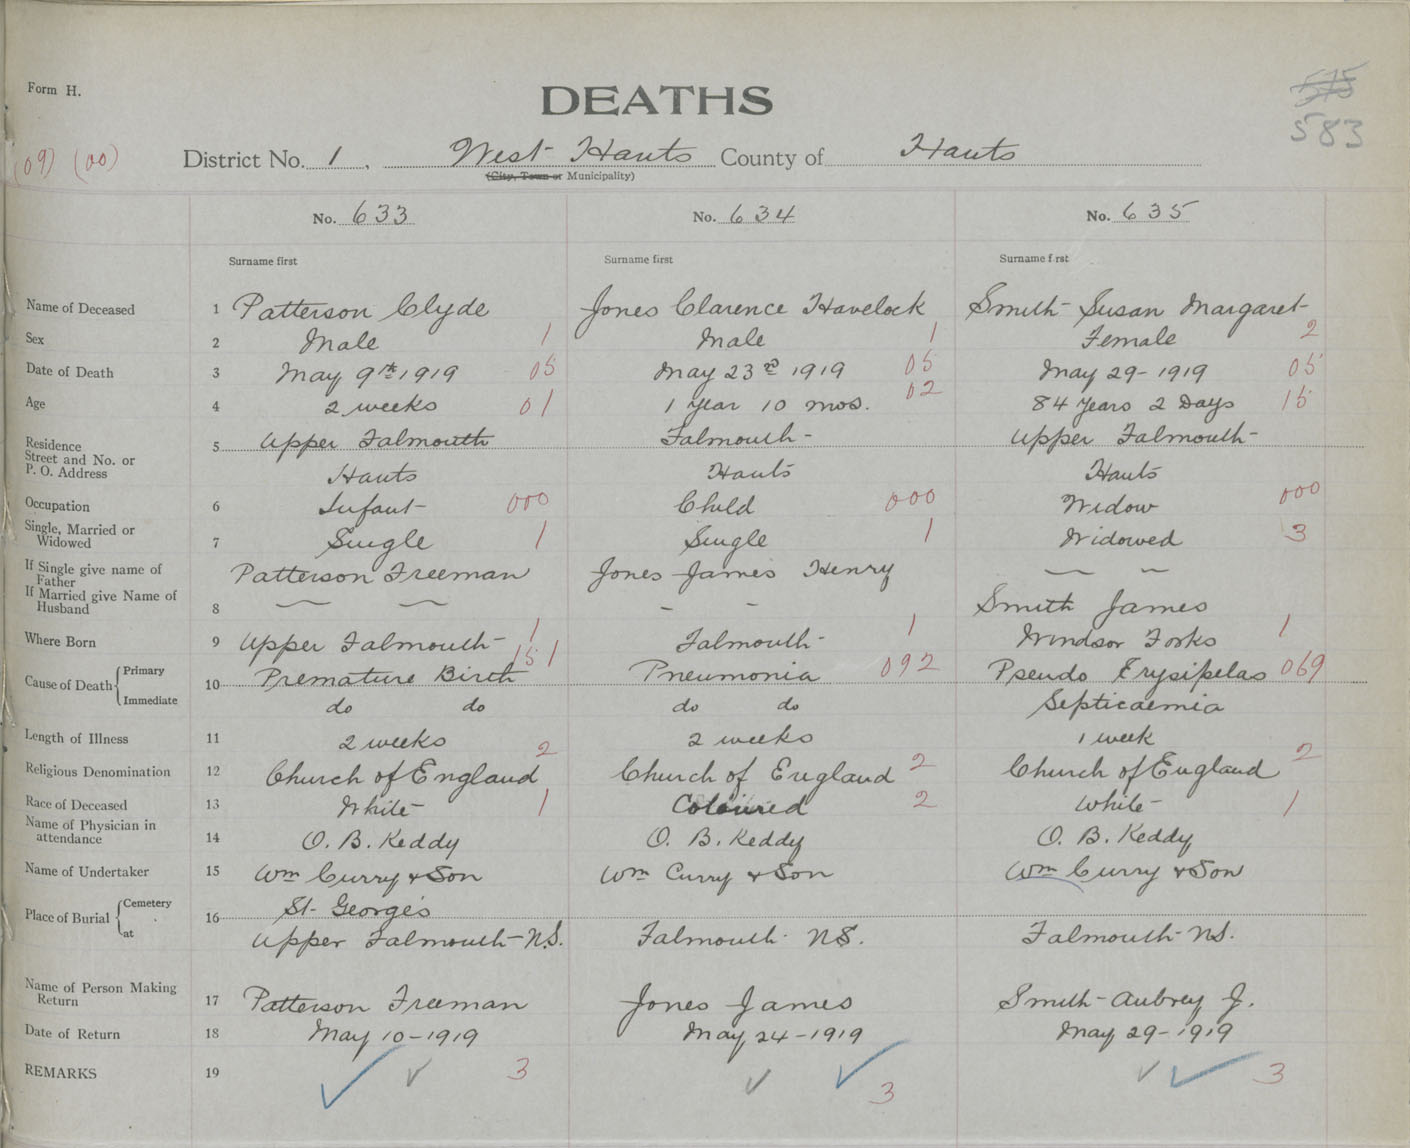 Form H.
DEATHS
575
583
(09) (00)
District No. 1, West Hants County of Hants
(City, Town or Municipality)
No. 633 No. 634 No. 635
Surname first Surname first Surname f rst
Name of Deceased 1 Patterson Clyde Jones Clarence Havelock Smith Susan Margaret
Sex 2 Male 1 Male 1 Female 2
Date of Death 3 May 9th 1919 05 May 23rd 1919 05 May 29-1919 05
Age 4 2 weeks 01 1 Year 10 mos. 02 84 Years 2 Days 15
Residence
Street and No. or
P. O. Address
5 Upper Falmouth Falmouth- Upper Falmouth-
Hants Hants Hants
Occupation 6 Infant 000 Child 000 Widow 000
Single, Married or
Widowed 7 Single 1 Single 1 Widowed 3
If Single give name of
Father Patterson Freeman Jones James Henry — —
If Married give Name of
Husband 8 — — - - Smith James
Where Born 9 Upper Falmouth 1 Falmouth- 1 Windsor Forks 1
Cause of Death Primary 10 Premature Birth 151 Pneumonia 092 Pseudo Erysipelas 069
Immediate do do do do Septicaemia
Length of Illness 11 2 weeks 2 weeks 1 week
Religious Denomination 12 Church of England 2 Church of England 2 Church of England 2
Race of Deceased 13 White 1 Coloured 2 White 1
Name of Physician in
attendance 14 O. B. Keddy O. B. Keddy O. B. Keddy
Name of Undertaker 15 Wm Curry & Son Wm Curry & Son Wm Curry & Son
Place of Burial Cemetery 16 St. George's
at Upper Falmouth-N.S. Falmouth NS. Falmouth-NS.
Name of Person Making
Return 17 Patterson Freeman Jones James Smith-Aubrey J.
Date of Return 18 May 10-1919 May 24-1919 May 29-1919
REMARKS 19 3 3 3